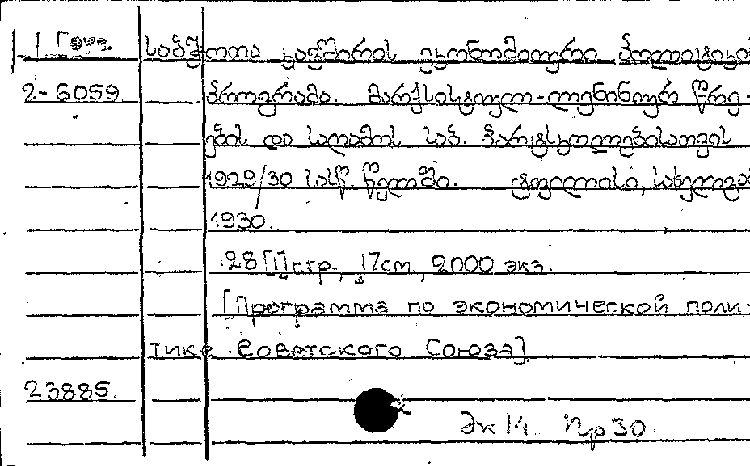 1 Груз. საბჭოთა კავშირის ეკონომიური პოლიტიკის
2-6059 პროგრამა. მარქსისტულ-ლენინურ წრე-
ების და საღამოს საბ. პარტსკოლებისათვის
1929/30 სასწ. წელში. ტფილისი, სახელგამ
1930.
28[1]стр., 17см., 2000 экз.
[Программа по экономической поли-
тике Советского Союза]
23885.
Эк 14. Пр 30.